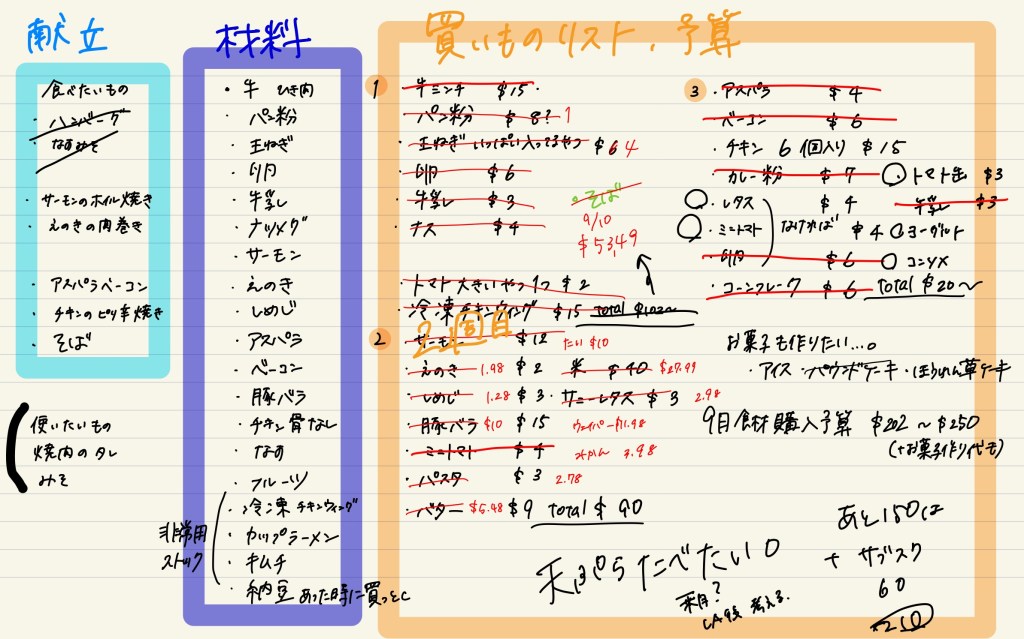 献立
食べたいもの
・ハンバーグ
・なすみそ
・サーモンのホイル焼き
・えのきの肉巻き
・アスパラベーコン
・チキンのピリ辛焼き
・そば
使いたいもの
焼肉のタレ
みそ
材料
・牛 ひき肉
・パン粉
・玉ねぎ
・卵
・牛乳
・ナツメグ
・サーモン
・えのき
・しめじ
・アスパラ
・ベーコン
・豚バラ
・チキン骨なし
・なす
・フルーツ
・冷凍チキンウィング
・カップラーメン
・キムチ
・納豆 あった時に買っとく
非常用
ストック
買いものリスト、予算
1
・牛ミンチ $15.
・パン粉 $8? 1
・玉ねぎ いっぱい入ってるやつ $6 4
・卵 $6
・牛乳 $3
・ナス $4
・そば
9/10
$53,49
・トマト大きいやつ1つ $2
・冷凍チキンウィング $15 total $102~
2
2週目
・サーモン $12 たい $10
・えのき 1.98 $2 米 $40 $27.99
・しめじ 1.28 $3 ・サニーレタス $3 2.98
・豚バラ $10 $15 ウェイパー $11.98
・ミニトマト $4 みかん 3.98
・パスタ $3 2.78
・バター $5.48 $9 total $90
3
・アスパラ $4
・ベーコン $6
・チキン 6個入り $15
・カレー粉 $7 ・トマト缶 $3
・レタス $4 牛乳 $3
・ミニトマト なければ $4 ヨーグルト
・卵 $6 コンソメ
・コーンフレーク $6 total $20~
お菓子も作りたい...。
・アイス ・パウンドケーキ ・ほうれん草ケーキ
9月食材購入予算 $202~$250
(+お菓子作り代も)
あと150は
+ サブスク
60
250
天ぷらたべたい
来月?
LA後考える.